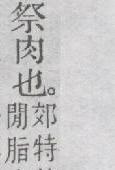 祭肉也。郊特
閒脂